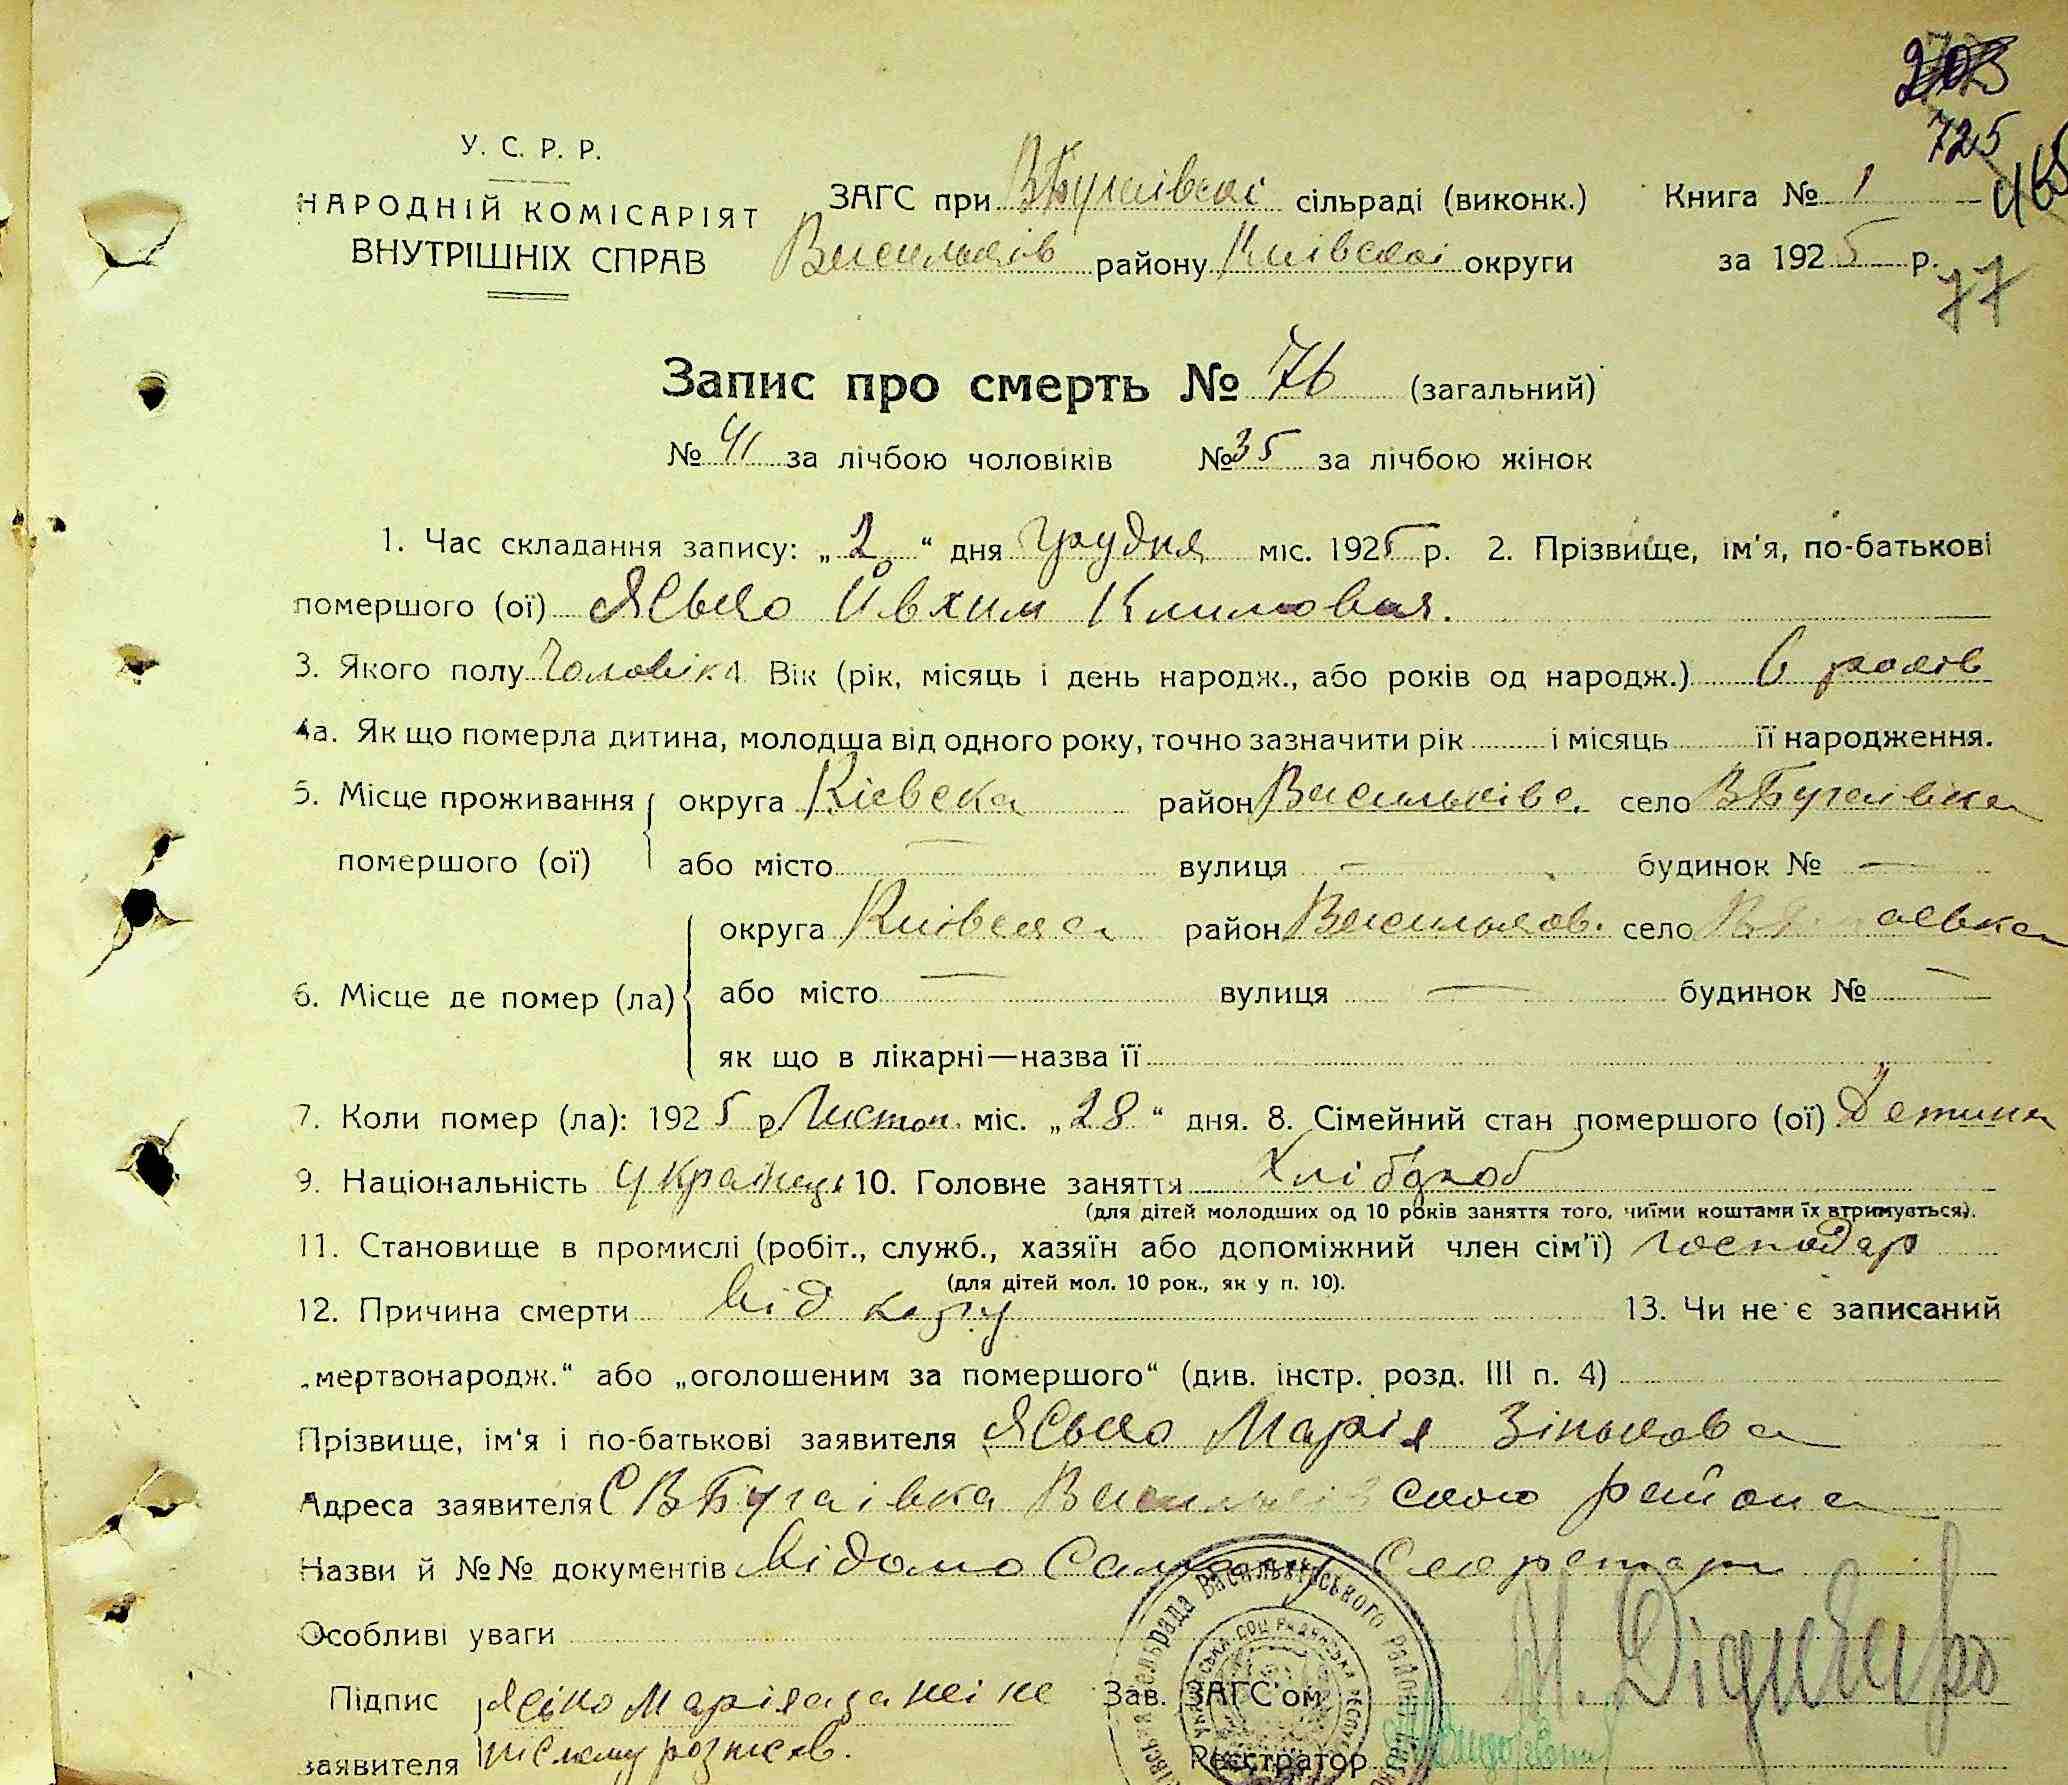 203
725
У. С. Р. Р.
НАРОДНІЙ КОМІСАРІЯТ
ВНУТРІШНІХ СПРАВ
ЗАГС при ВБугаївскі сільраді (виконк.)
Васильків району Київскої округи
Книга № 1
за 1925 р.
77
Запис про смерть № 76 (загальний)
№ 41 за лічбою чоловіків № 35 за лічбою жінок
1. Час складання запису: „2“ дня Грудня міс. 1925 р. 2. Прізвище, ім'я, по-батькові
помершого (ої) Ясько Йвхим Климовая.
3. Якого полу Чоловіка Вік (рік, місяць і день народж., або років од народж.) 6 років
4а. Як що померла дитина, молодша від одного року, точно зазначити рік і місяць її народження.
5. Місце проживання округа Кієвска район Васильківс. село ВБугаівка
помершого (ої) або місто — вулиця — будинок № —
округа Киівска район Васильков. село
6. Місце де помер (ла) або місто — вулиця — будинок № —
як що в лікарні—назва її
7. Коли помер (ла): 1925 р Листоп. міс. „28“ дня. 8. Сімейний стан помершого (ої) Детина
9. Національність Українець 10. Головне заняття Хлібороб
(для дітей молодших од 10 років заняття того, чиїми коштами їх втримується).
11. Становище в промислі (робіт., служб., хазяїн або допоміжний член сім'ї) господар
(для дітей мол. 10 рок., як у п. 10).
12. Причина смерти Від кору 13. Чи не є записаний
„мертвонародж.“ або „оголошеним за помершого“ (див. інстр. розд. III п. 4)
Прізвище, ім'я і по-батькові заявителя Ясько Марія Зінькова
Адреса заявителя С ВБугаівка Васильківского района
Назви й №№ документів Відомо Секретарю
Особливі уваги
Підпис Ясько Марія
заявителя
Зав. ЗАГС'ом
Реєстратор
сільрада Васильківського Району